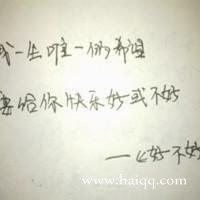 我一生唯一的希望
要给你快乐好或不好
——好不好
www.haiqq.com